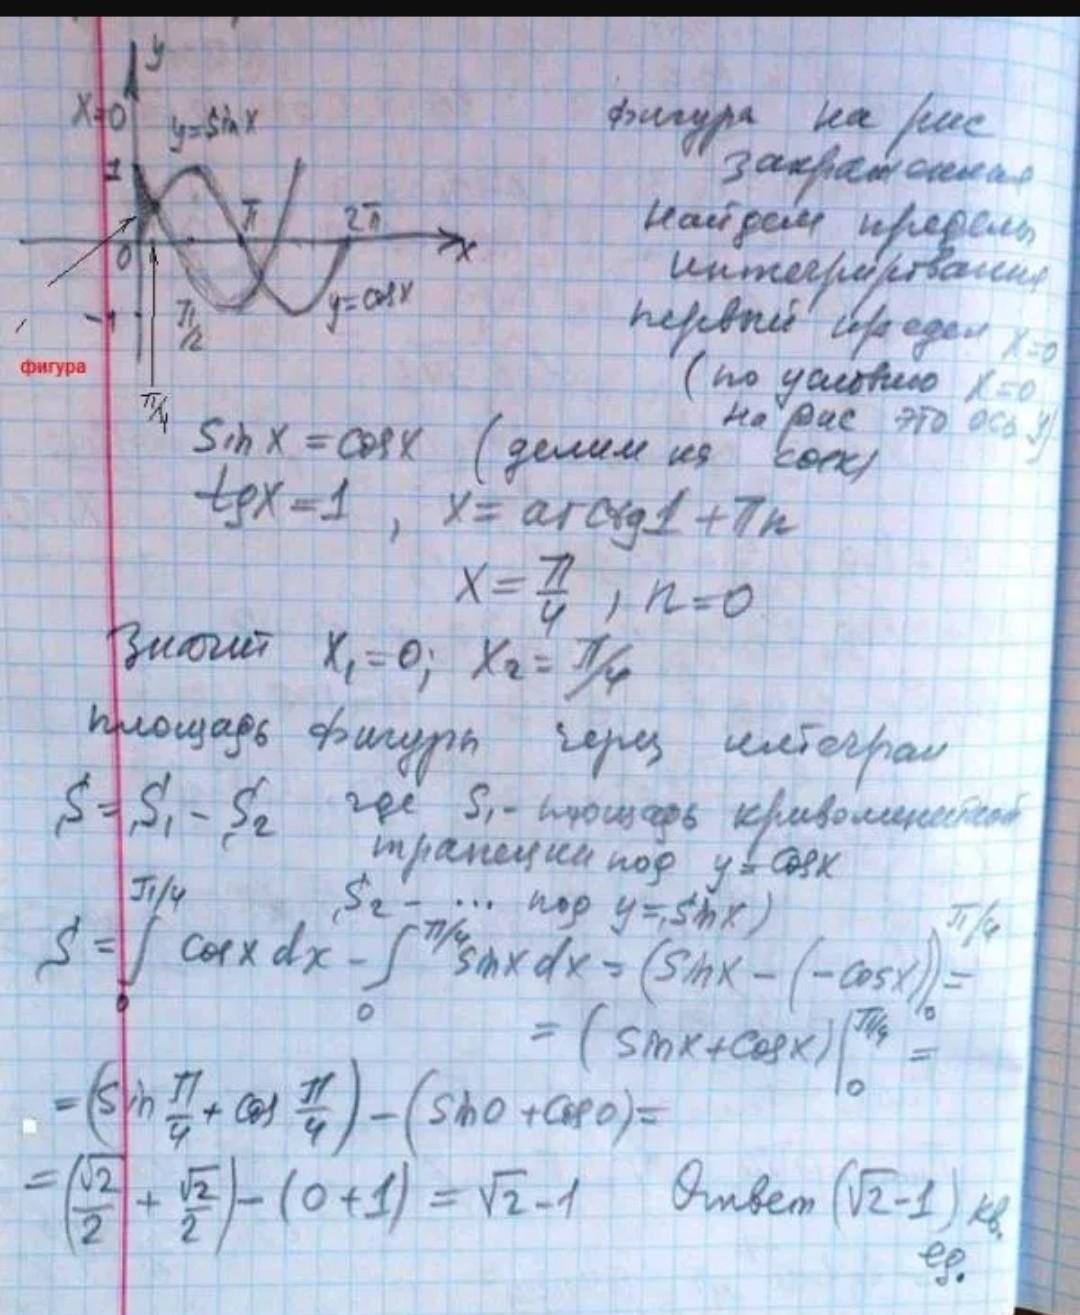 y
x=0
y=sinx
1
π
2π
x
0
-1
π/2
y=cosx
фигура
π/4
фигура на рис
закрашенная
найдем пределы
интегрирования
первый предел x=0
(по условию x=0
на рис это ось y)
sinx = cosx (делим на cosx)
tgx=1, x= arctg1+πn
x=π/4, n=0
Значит x₁=0; x₂=π/4
площадь фигуры через интеграл
S=S₁-S₂ где S₁- площадь криволинейной
трапеции под y=cosx
S₂- ... под y=sinx)
S=∫₀^π/4 cosx dx - ∫₀^π/4 sinx dx = (sinx-(-cosx))|₀^π/4 =
= (sinx+cosx)|₀^π/4 =
=(sin π/4 + cos π/4) - (sin0+cos0)=
=(√2/2 + √2/2) - (0+1) = √2-1 Ответ (√2-1) кв.
ед.